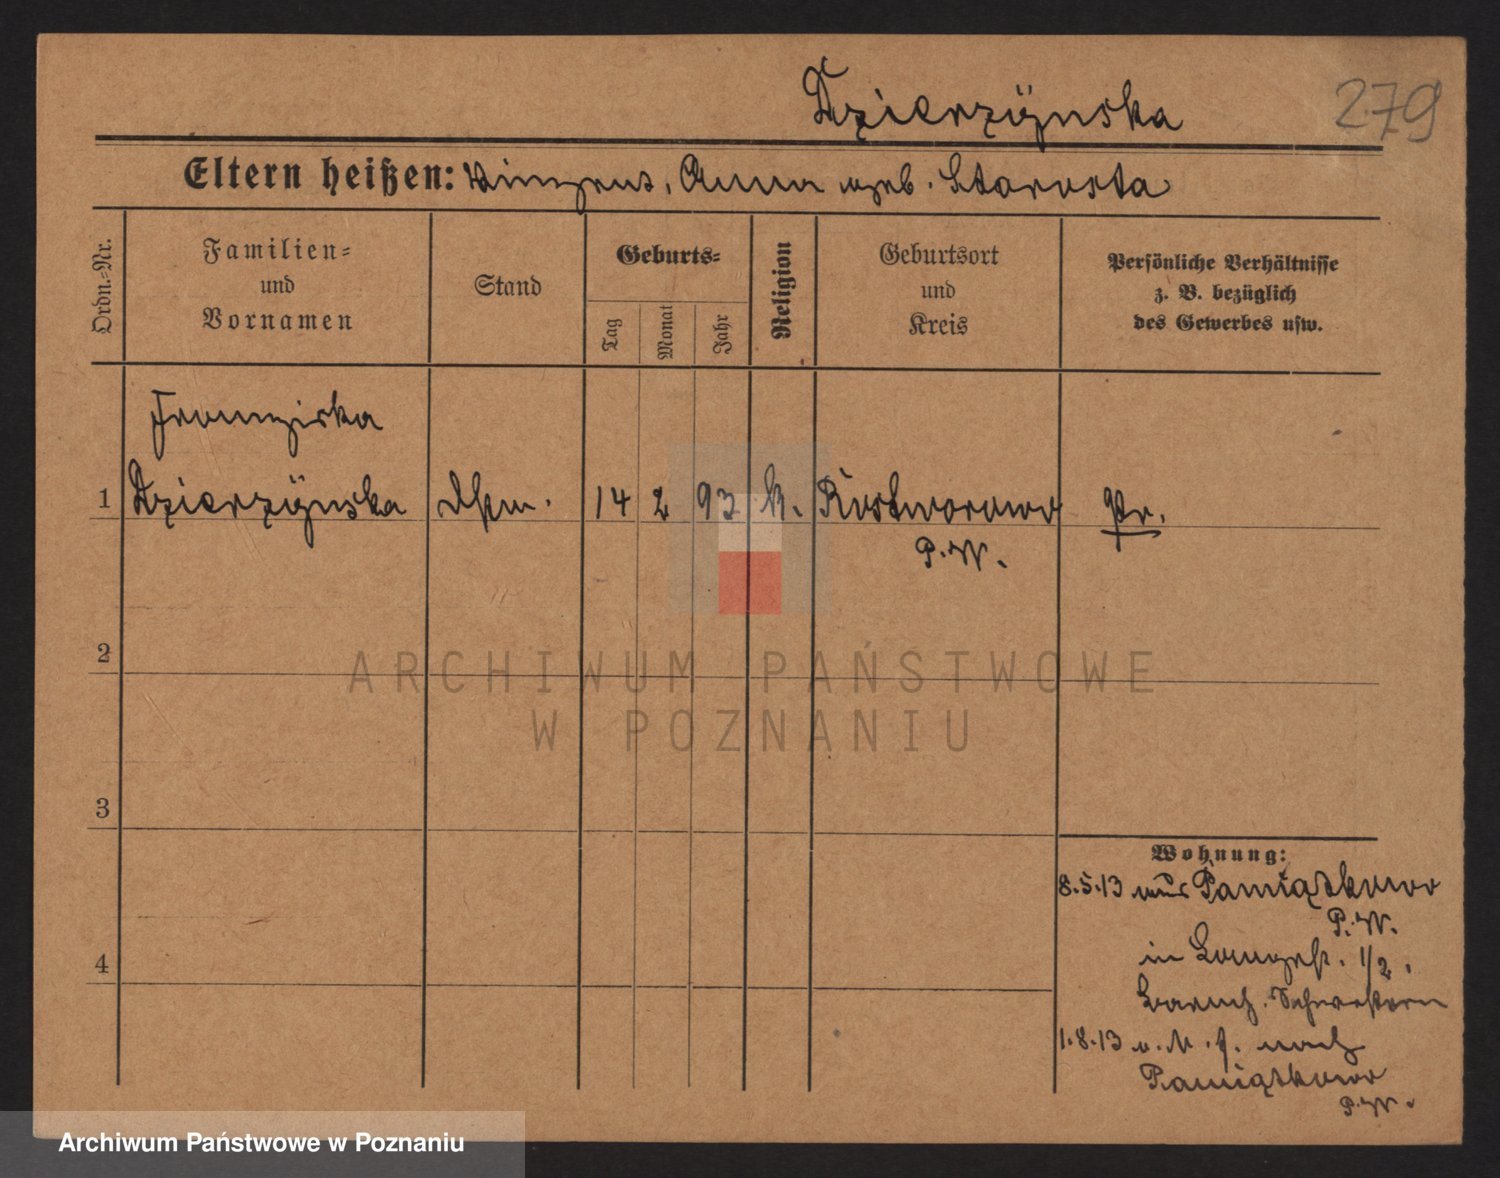 Dzierzÿnska
279
Eltern heißen: Vinzens, Anna geb. Starosta
Ordn.-Nr.
Familien-
und
Vornamen
Stand
Geburts-
Tag
Monat
Jahr
Religion
Geburtsort
und
Kreis
Persönliche Verhältnisse
z. B. bezüglich
des Gewerbes usw.
Franziska
1 Dzierzÿnska 14 2 93 k. Rostworowo Pr.
P. W.
2
ARCHIWUM PAŃSTWOWE
W POZNANIU
3
Wohnung:
8.5.13 aus Pamiątkowo
P. W.
in Langestr. 1/2.
Barmh. Schwestern
4
1.8.13 nach
Pamiątkowo
P. W.
Archiwum Państwowe w Poznaniu